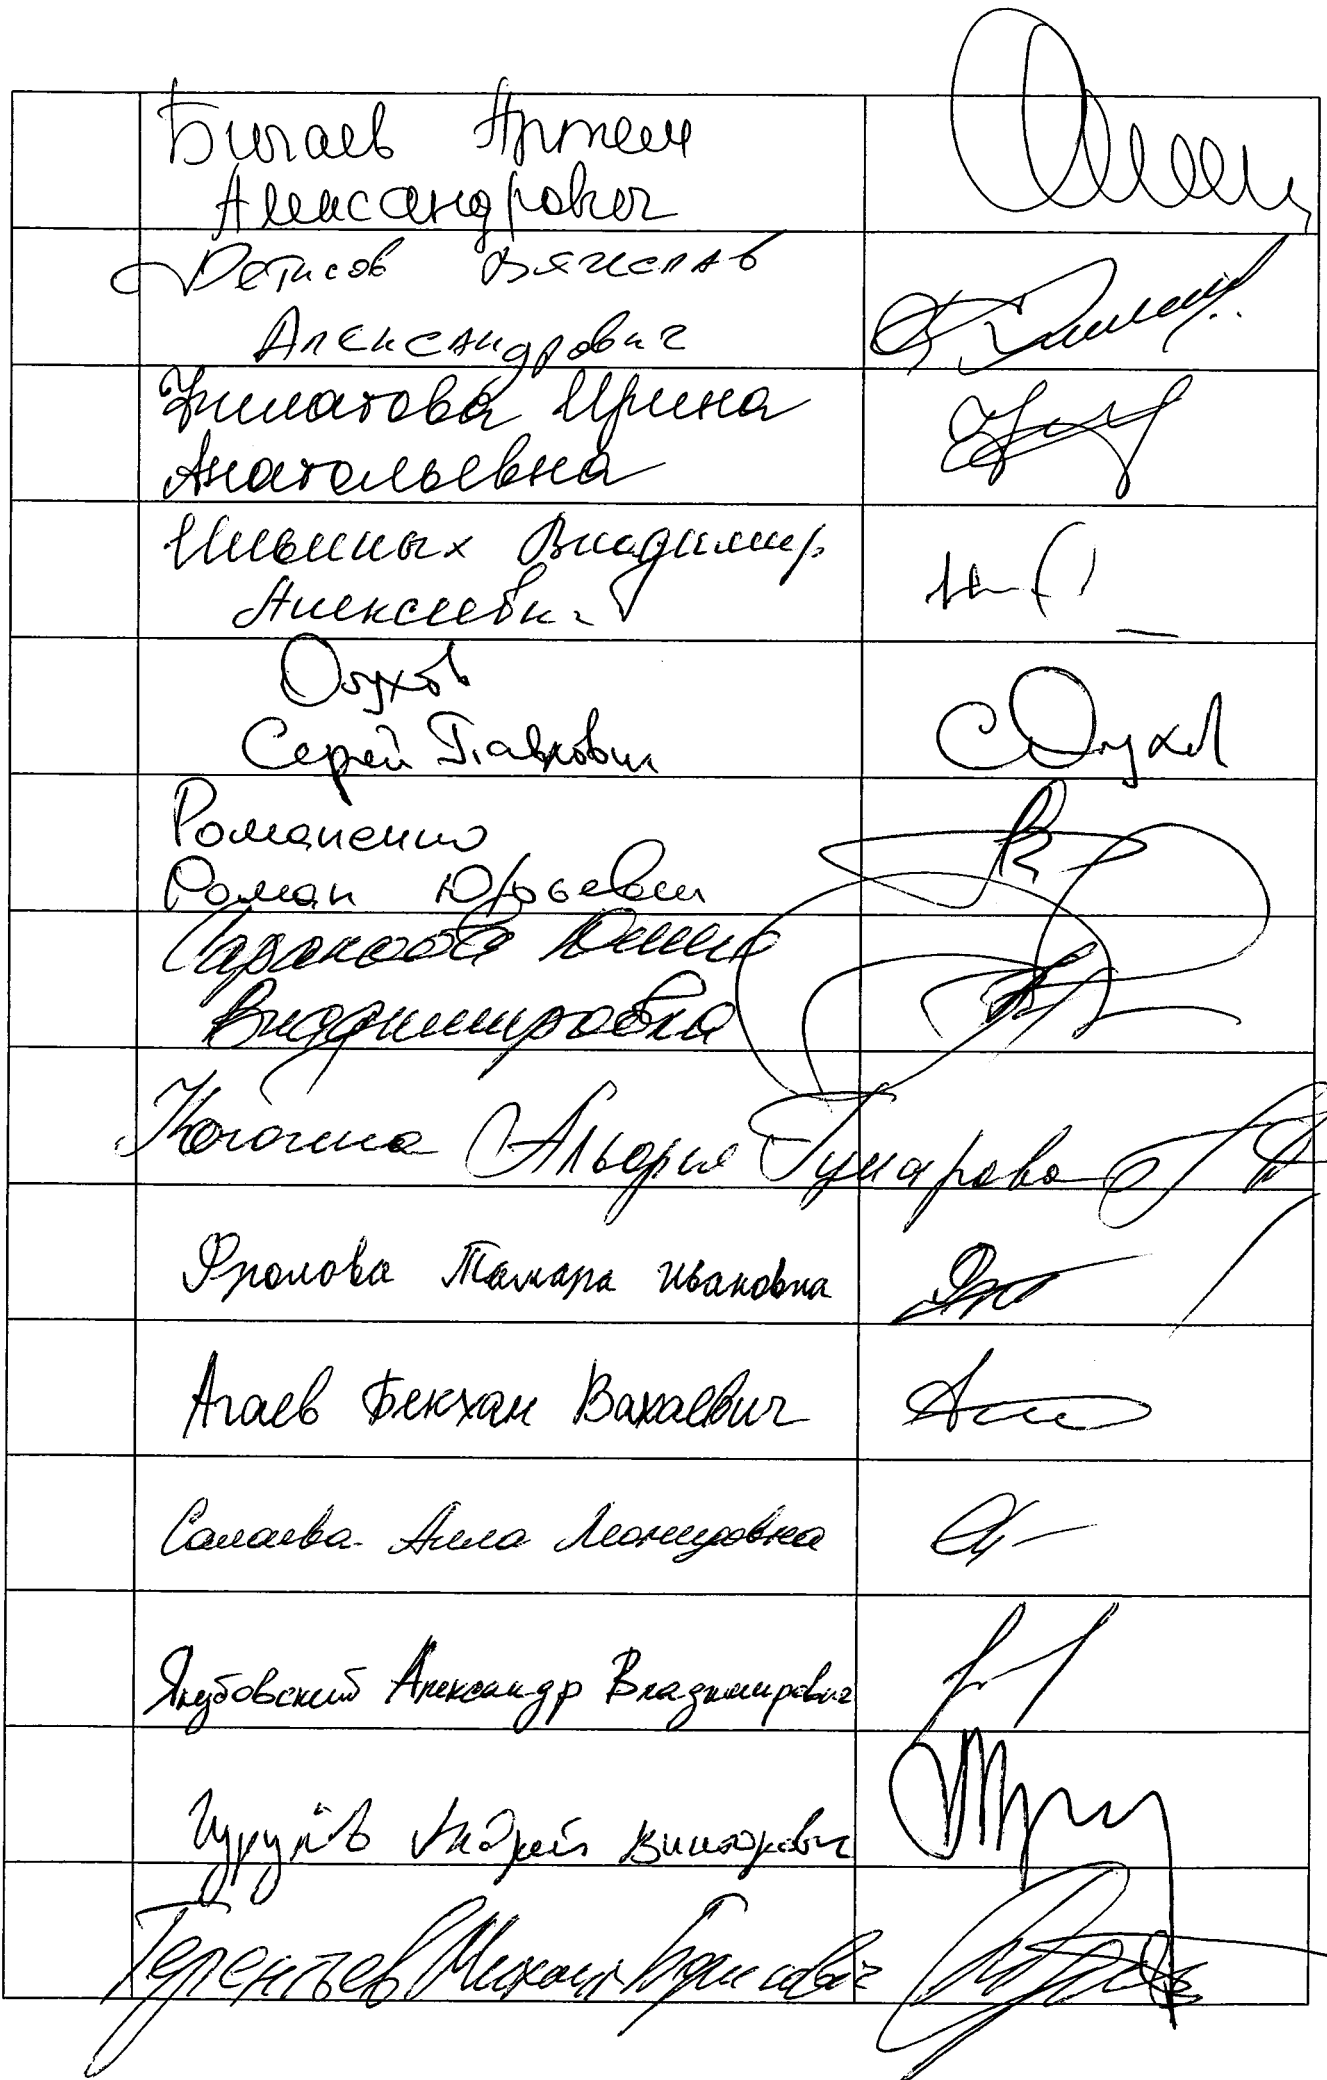 Бичаев Артем
Александрович
Петисов Вячеслав
Александрович
Филатова Ирина
Анатольевна
Ильиных Владимир
Алексеевич
Обухов
Сергей Павлович
Романенко
Роман Юрьевич
Саранова Юлия
Владимировна
Когогина Альфия Гумаровна
Фролова Тамара Ивановна
Агаев Бекхан Вахаевич
Салаева Алла Леонидовна
Якубовский Александр Владимирович
Гурулёв Андрей Викторович
Терентьев Михаил Борисович